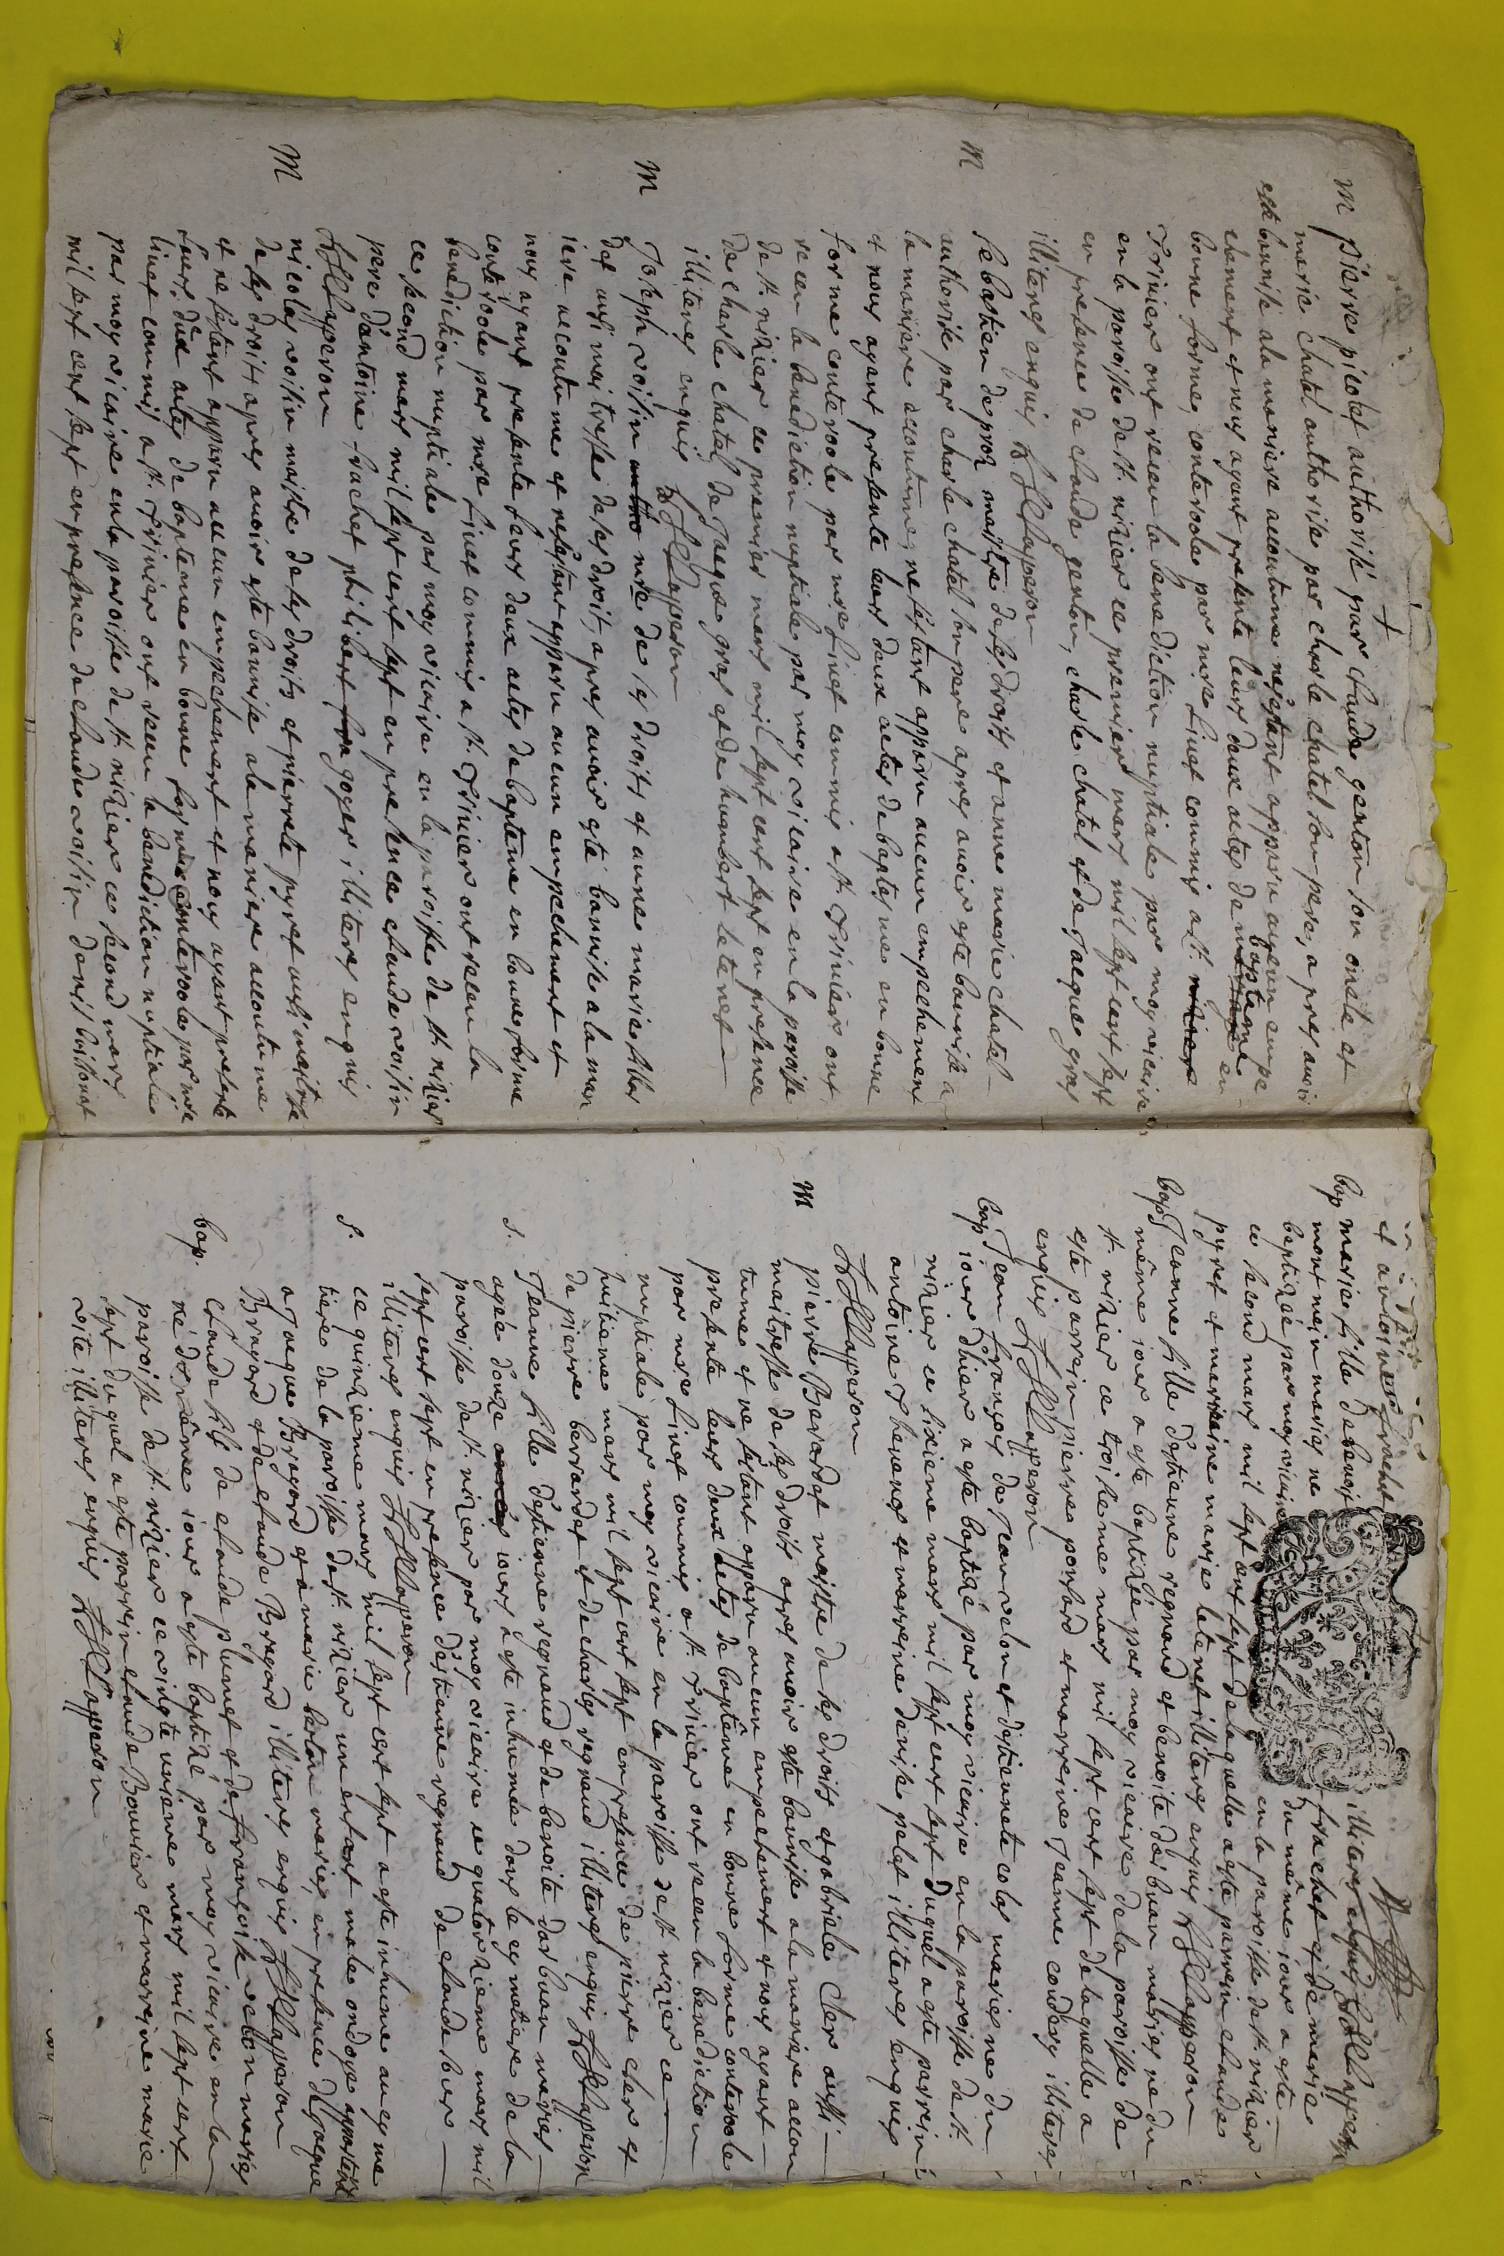 M pierre picolet authorisé par claude genton son oncle et
marie chatel authorisé par charle chatel son pere, apres auoir
esté bannise a la maniere acoutume nestant apparu aucun empe
chement et nous ayant presenté leurs deux actes de baptême en
bonne forme, conteroolés par mre finet commis a st
trivier ont receu la benediction nuptiale par moy vicaire
en la paroisse de st nizier ce premier mars mil sept cent sept
en presence de claude genton, charle chatel et de Jaeque gras
illiteres enquis Chapperon
M Sebastien de proz maitre de ses droits et anne marie chatel
authorisée par charle chatel son pere apres auoir este bannise a
la maniere accoutumes ne sestant apparu aucun empeehement
et nous ayant presente leurs deux actes de baptesme en bonne
forme conteroole par mre finet commis a st Trivier ont
receu la benediction nuptiale par moy vicaire en la paroisse
de st. nizier ce premier mars mil sept cent sept en presence
de charle chatel de Jaeque gras et de humbert latenet
illiteres enquis Chapperon
M Joseph voisin mre de ses droits et anne marie
et ausi maitresse de ses droits apres auoir esté bannise a la man
iere acoutume et nestant apparu aucun empechement et
nous ayant presente leurs deux actes de baptême en bonne forme
conteroole par mre finet commis a st Trivier ont receu la
benediction nuptiale par moy vicaire en la paroisse de st nizier
ce second mars mil sept cent sept en presence claude voisin
pere d'antoine brachet philibert goyer illiteres enquis
Chapperon
M nicolas voisin maistre de ses droits et pierrete pyret ausi maitresse
de ses droits apres auoir este bannise a la maniere accoutume
et ne sestant apparu aucun empechement et nous ayant presente
leurs deux actes de bapteme en bonne forme conteroole par mre
finet commis a st. Trivier ont receu la benediction nuptiale
par moy vicaire en la paroisse de st nizier ce second mars
mil sept cent sept en presence de claude voisin denis buissonat
et antoine brachet illiteres enquis Chapperon
bap marie fille de benoit brachet et de marie
mont mein maries ne du même iour a esté
baptizée par moy vicaire en la paroisse de st. nizier
ce second mars mil sept cent sept de laquelle a esté parrein claude
pyret et marreine marie latenet illiteres enquis Chapperon
bap Jeanne fille d'estienne regnaud et benoite darbuan maries ne du
même iour a esté baptizée par moy vicaire de la paroisse de
st. nizier ce troisieme mars mil sept cent sept de laquelle a
esté parrein pierre ponsard et marreine Jeanne condery illiteres
enquis Chapperon
bap Jean françois de Jean velon et d'estiennete colas maries ne du
iour d'hier a esté baptizé par moy vicaire en la paroisse de st.
nizier ce sixieme mars mil sept cent sept duquel a esté parrein
antoine thevenos et marreine denise pelet illiteres enquis
Chapperon
M pierre Berardat maistre de ses droits et gabriele cler aussi
maitresse de ses droits apres auoir esté bannise a la maniere accou
tumee et ne sestant apparu aucun empechement et nous ayant
presente leurs deux actes de baptême en bonne forme conteroole
par mre finet commis a st. Trivier ont receu la benediction
nuptiale par moy vicaire en la paroisse de st nizier ce
huitieme mars mil sept cent sept en presence de pierre cler et
de pierre berardat et de charles regnaud illiteres enquis Chapperon
S. Jeanne fille d'estienne regnaud et de benoite darbuan maries
agée donze iours a esté inhumée dans le cymetiere de la
paroisse de st. nizier par moy vicaire ce quatorzieme mars mil
sept cent sept en presence d'estienne regnaud de claude bur
illiteres enquis Chapperon
S. ce quinzieme mars mil sept cent sept a esté inhume au cyme
tiere de la paroisse de st. nizier un enfant male ondoye appartenant
a Jaeque Brayard et a marie berton maries, en presence de Jaeque
Brayard et de claude Brayard illiteres enquis Chapperon
bap. claude fils de claude plumet et de françoise velon maries
né du même iour a esté baptizé par moy vicaire en la
paroisse de st. nizier ce vingte unieme mars mil sept cent
sept duquel a esté parrein claude Bouvier et marreine marie
illiteres enquis Chapperon